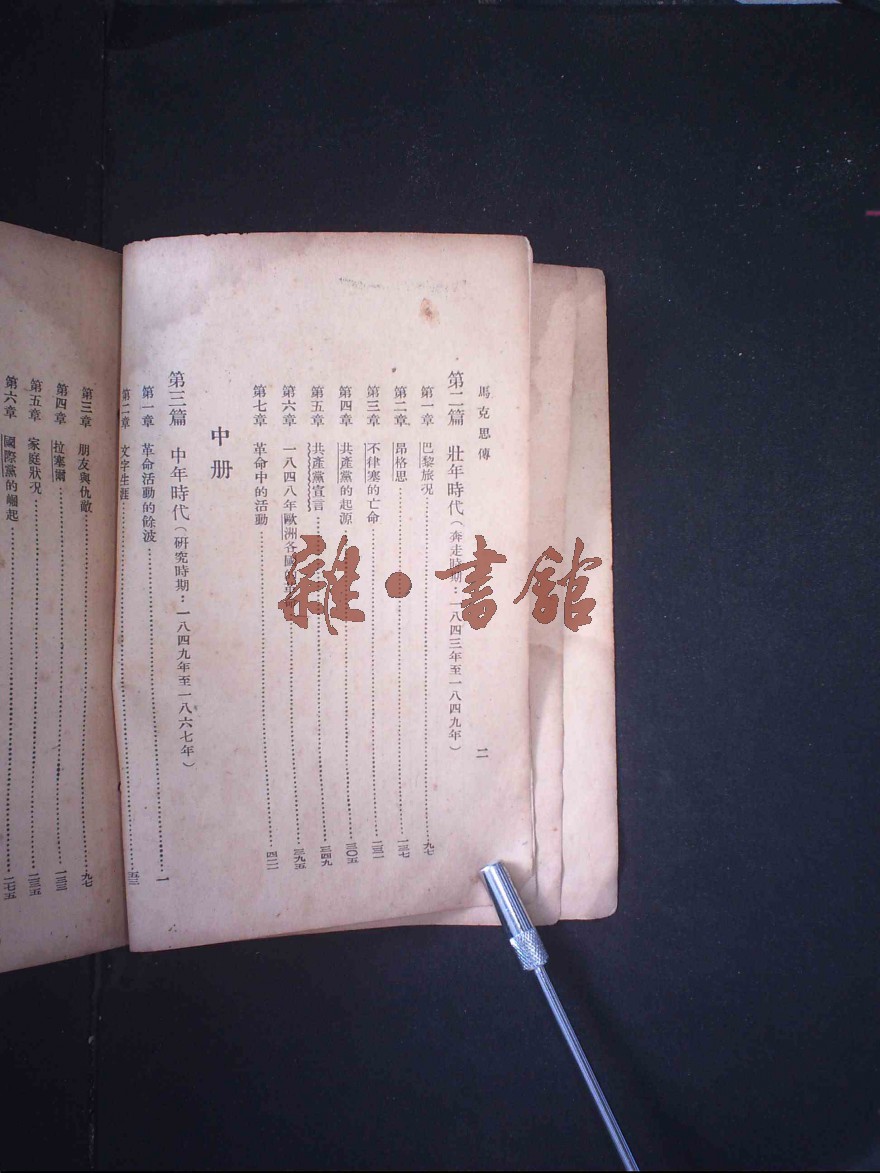 馬克思傳
二
第二篇 壯年時代(奔走時期:一八四三年至一八四九年)
第一章 巴黎旅況 九七
第二章 昂格思 一三七
第三章 不律塞的亡命
第四章 共產黨的起源 三〇五
第五章 共產黨宣言 三四九
第六章 一八四八年歐洲各國 三九五
第七章 革命中的活動 四二一
中册
第三篇 中年時代(研究時期:一八四九年至一八六七年)
第一章 革命活動的餘波 一
第二章 文字生涯 五三
第三章 朋友與仇敵 九七
第四章 拉塞爾 一三三
第五章 家庭狀況 二三五
第六章 國際黨的崛起 二七五
雜·書館